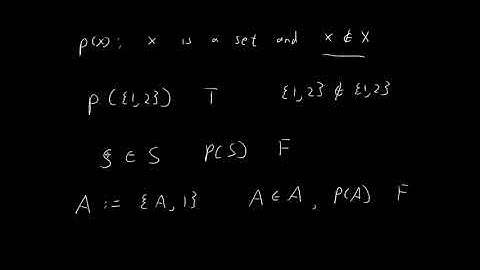 p(x): x is a set and x ∉ x
P({1,2}) T {1,2} ∉ {1,2}
S ∈ S P(S) F
A := {A, 1} A ∈ A, P(A) F